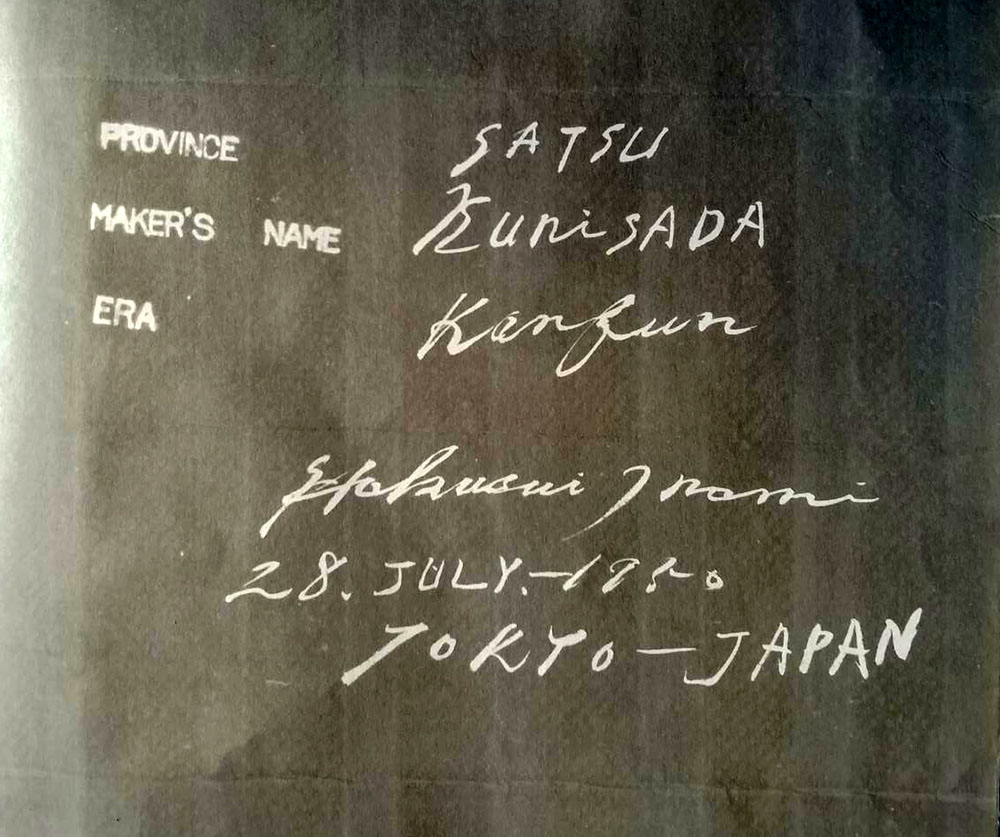 PROVINCE SATSU
MAKER'S NAME KUNiSADA
ERA Kanbun
Hakusui Inami
28. JULY.-1950
TOKYO-JAPAN